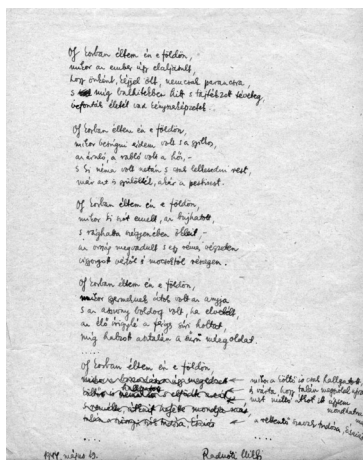 Oly korban éltem én e földön,
mikor az ember úgy elaljasult,
hogy önként, kéjjel ölt, nemcsak parancsra,
s míg balhitekben hitt s tajtékzott téveteg,
befonták életét vad kényszerképzetek.
Oly korban éltem én e földön,
mikor besúgni érdem volt s a gyilkos,
az áruló, a rabló volt a hős, –
s ki néma volt netán s csak lelkesedni rest,
már azt is gyűlölték, akár a pestisest.
Oly korban éltem én e földön,
mikor ki szót emelt, az bujhatott,
s rághatta szégyenében ökleit, –
az ország megvadult s egy rémes végzeten
vigyorgott vértől s mocsoktól részegen.
Oly korban éltem én e földön,
mikor gyermeknek átok volt az anyja,
s az asszony boldog volt, ha elvetélt,
az élő írígylé a férges síri holtat,
míg habzott asztalán a
.....
Oly korban éltem én e földön,
mikor a költő is csak hallgatott,
s várta, hogy talán megszólal újra
mert méltó átkot itt úgysem
mondhatna
a rettentő szavak tudósa,
1944. május 19.
Radnóti Miklós